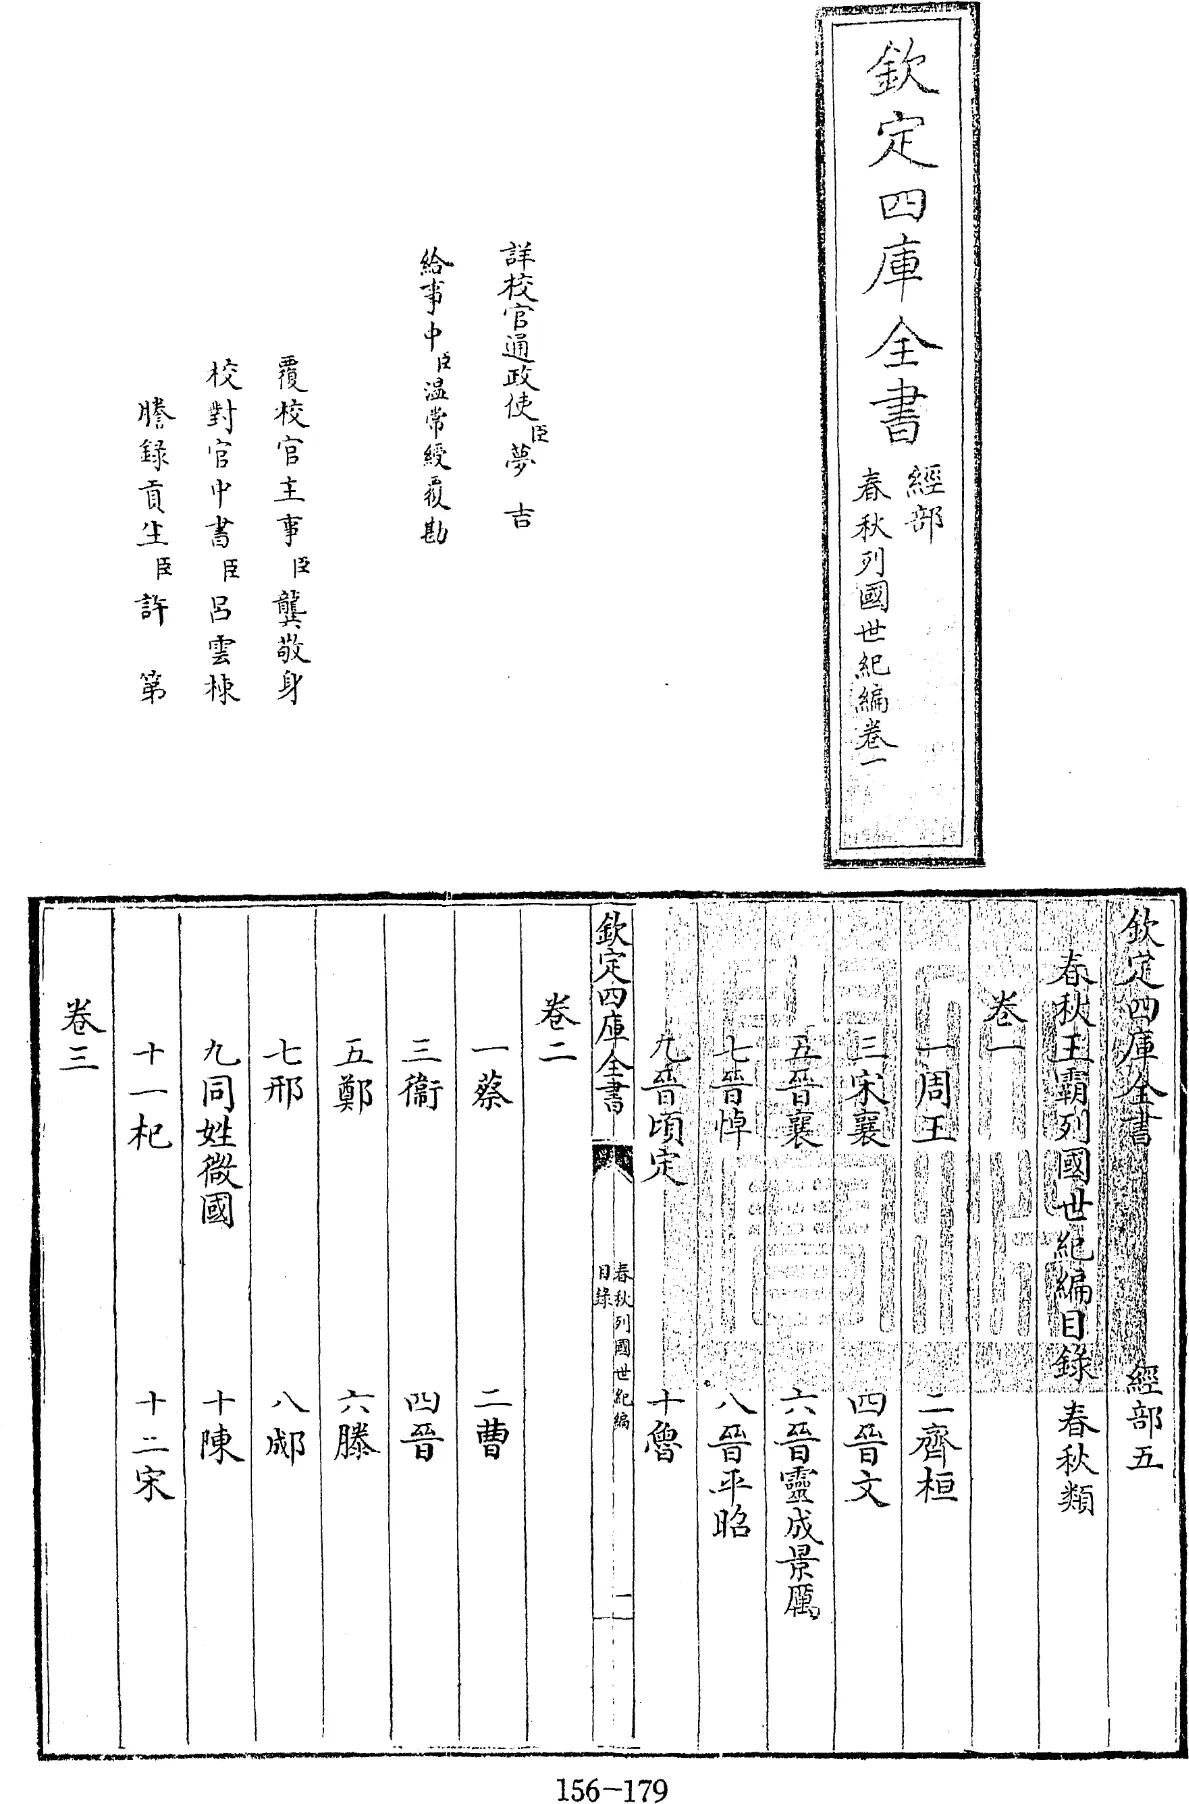 欽定四庫全書
經部
春秋列國世紀編卷一
詳校官通政使臣夢吉
給事中臣温常綬覆勘
覆校官主事臣龔敬身
校對官中書臣呂雲棟
謄錄貢生臣許第
欽定四庫全書
經部五
春秋王霸列國世紀編目錄
春秋類
卷一
一周王
二齊桓
三宋襄
四晉文
五晉襄
六晉靈成景厲
七晉悼
八晉平昭
九晉頃定
十魯
欽定四庫全書
春秋列國世紀編
目錄
一
卷二
一蔡
二曹
三衞
四晉
五鄭
六滕
七邢
八郕
九同姓微國
十陳
十一杞
十二宋
卷三
156-179